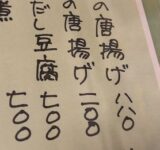 の唐揚げ 八八〇
の唐揚げ 二〇〇
だし豆腐 七〇〇
煮 七〇〇